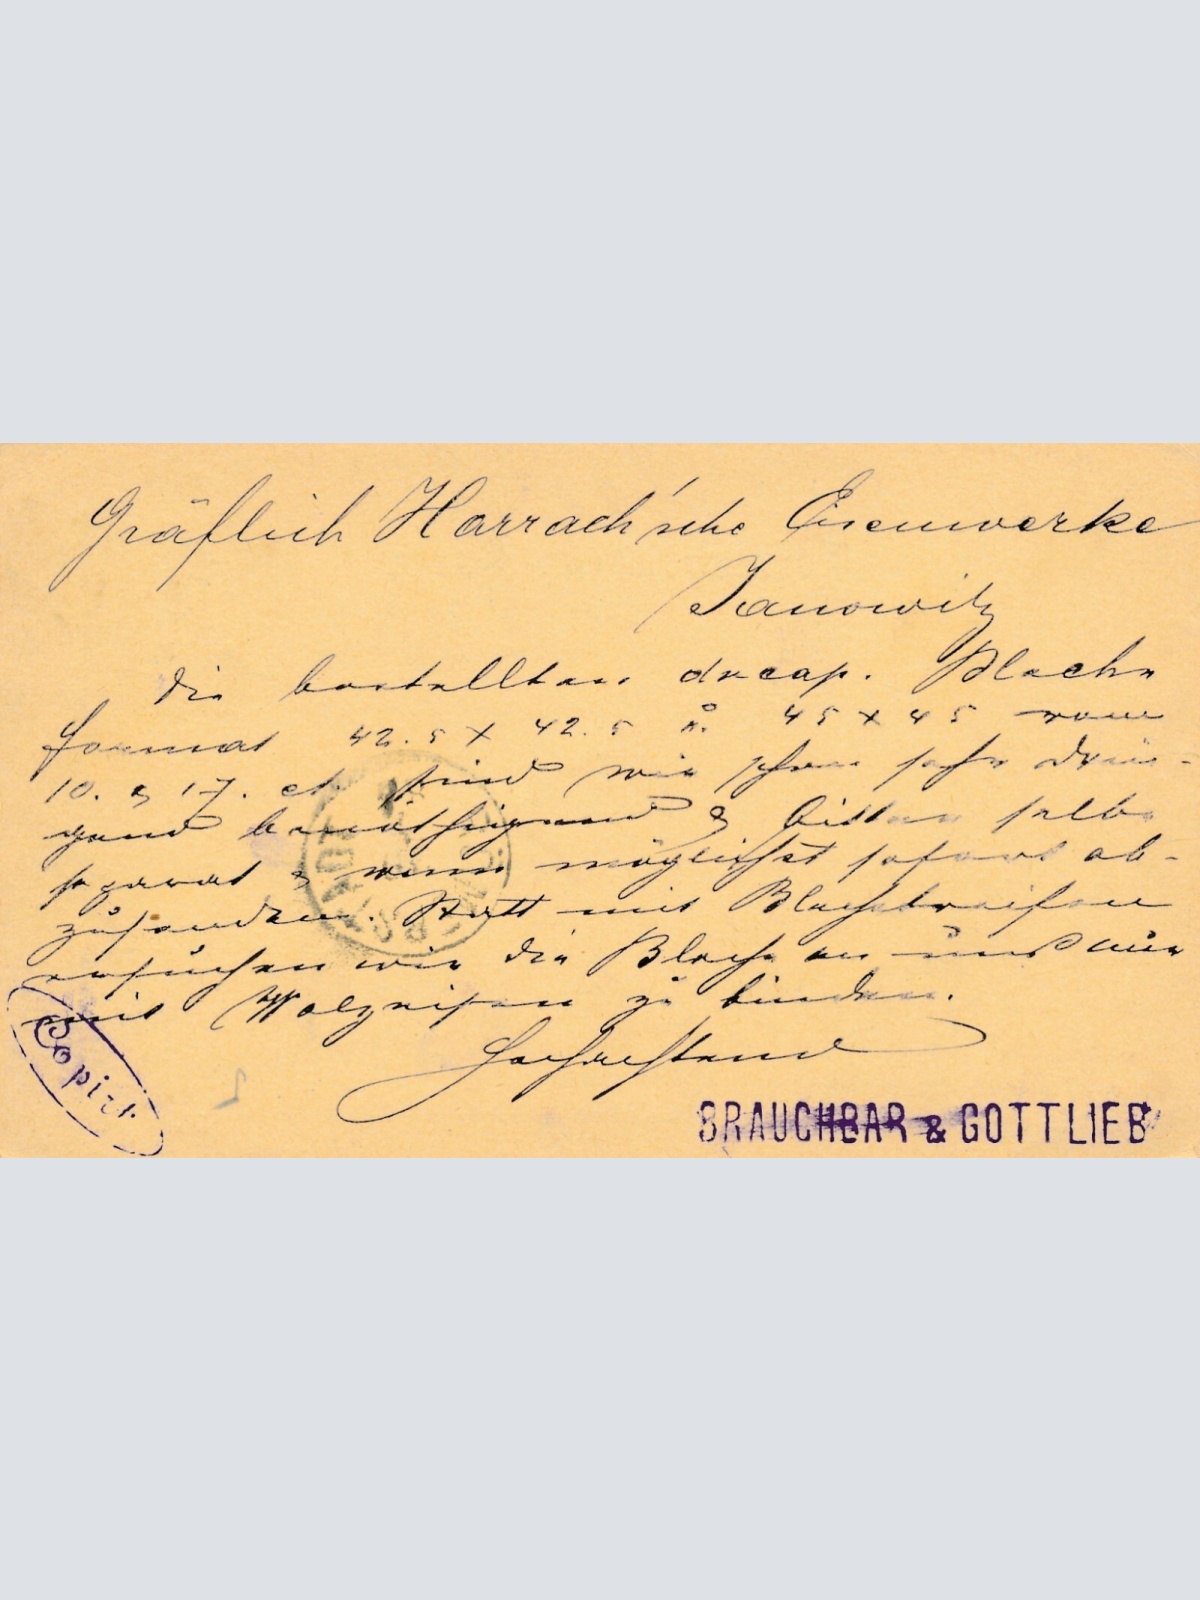 Gräflich Harrach'sche Eisenwerke
Janowitz
Die bestellten decap. Bleche
Format 42.5 x 42.5 u. 45 x 45 vom
10. & 17. ct. sind wir schon sehr drin-
gend benöthigend & bitten selbe
separat & wenn möglichst sofort ab-
zusenden. Statt mit Blechstreifen
ersuchen wir die Bleche an uns nur
mit Walzeisen zu binden.
Hochachtend
Copirt
BRAUCHBAR & GOTTLIEB